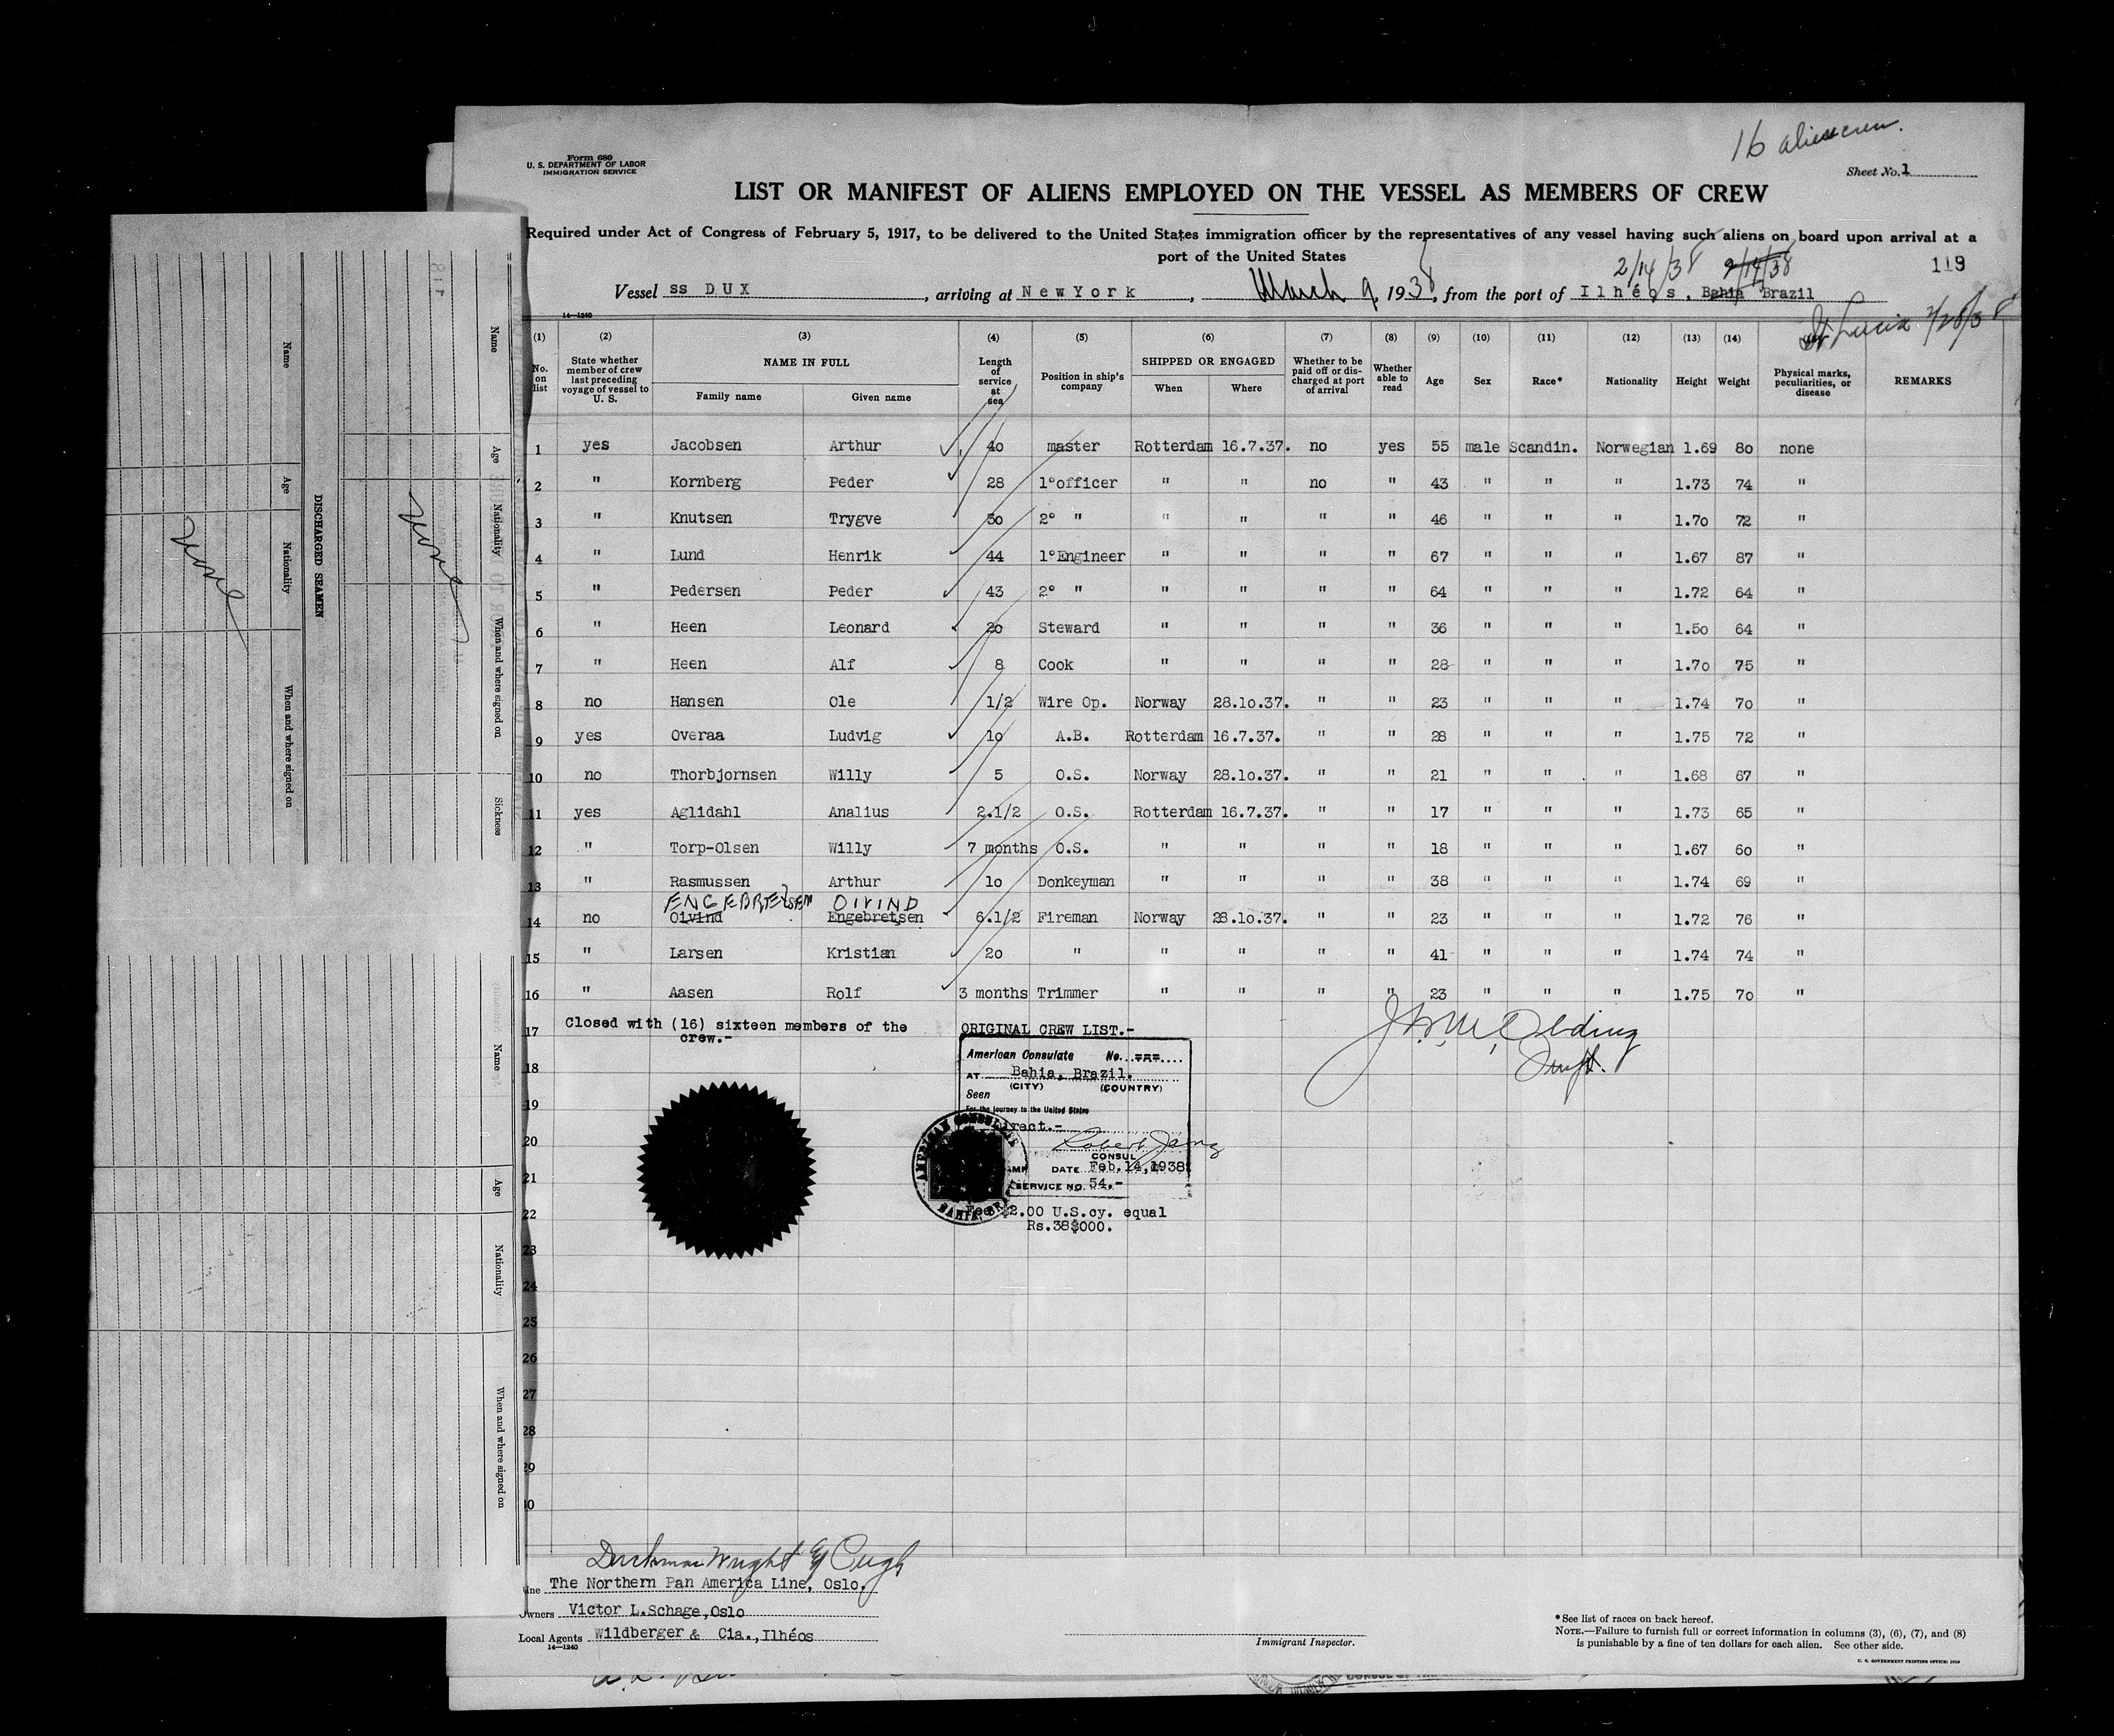 16 alien crew.
Form 680
U. S. DEPARTMENT OF LABOR
IMMIGRATION SERVICE
Sheet No. 1
LIST OR MANIFEST OF ALIENS EMPLOYED ON THE VESSEL AS MEMBERS OF CREW
Required under Act of Congress of February 5, 1917, to be delivered to the United States immigration officer by the representatives of any vessel having such aliens on board upon arrival at a
port of the United States
2/14/38 2/14/38 119
Vessel ss DUX, arriving at New York, March 9, 1938, from the port of Ilhéos, Bahia Brazil
St Lucia 2/28/38
14—1240
(1) (2) (3) (4) (5) (6) (7) (8) (9) (10) (11) (12) (13) (14)
No. on list State whether member of crew last preceding voyage of vessel to U. S. NAME IN FULL Family name Given name Length of service at sea Position in ship's company SHIPPED OR ENGAGED When Where Whether to be paid off or discharged at port of arrival Whether able to read Age Sex Race* Nationality Height Weight Physical marks, peculiarities, or disease REMARKS
1 yes Jacobsen Arthur 40 master Rotterdam 16.7.37. no yes 55 male Scandin. Norwegian 1.69 80 none
2 " Kornberg Peder 28 1°officer " " no " 43 " " " 1.73 74 "
3 " Knutsen Trygve 30 2° " " " " " 46 " " " 1.70 72 "
4 " Lund Henrik 44 1°Engineer " " " " 67 " " " 1.67 87 "
5 " Pedersen Peder 43 2° " " " " " 64 " " " 1.72 64 "
6 " Heen Leonard 20 Steward " " " " 36 " " " 1.50 64 "
7 " Heen Alf 8 Cook " " " " 28 " " " 1.70 75 "
8 no Hansen Ole 1/2 Wire Op. Norway 28.10.37. " " 23 " " " 1.74 70 "
9 yes Overaa Ludvig 10 A.B. Rotterdam 16.7.37. " " 28 " " " 1.75 72 "
10 no Thorbjornsen Willy 5 O.S. Norway 28.10.37. " " 21 " " " 1.68 67 "
11 yes Aglidahl Analius 2.1/2 O.S. Rotterdam 16.7.37. " " 17 " " " 1.73 65 "
12 " Torp-Olsen Willy 7 months O.S. " " " " 18 " " " 1.67 60 "
13 " Rasmussen Arthur 10 Donkeyman " " " " 38 " " " 1.74 69 "
ENGEBRETSEN OIVIND
14 no Oivind Engebretsen 6.1/2 Fireman Norway 28.10.37. " " 23 " " " 1.72 76 "
15 " Larsen Kristian 20 " " " " " 41 " " " 1.74 74 "
16 " Aasen Rolf 3 months Trimmer " " " " 23 " " " 1.75 70 "
17 Closed with (16) sixteen members of the
crew.-
ORIGINAL CREW LIST.-
American Consulate No. ===
AT Bahia, Brazil.
(CITY) (COUNTRY)
Seen
For the journey to the United States
Direct.-
CONSUL
DATE Feb.14,1938
SERVICE NO. 54.-
AMERICAN CONSULATE
BAHIA
Fee $2.00 U.S.cy. equal
Rs.38$000.
18
19
20
21
22
23
24
25
26
27
28
29
30
The Northern Pan America Line, Oslo.
Owners Victor L.Schage,Oslo
Local Agents Wildberger & Cia.,Ilhéos
14—1240
Immigrant Inspector.
*See list of races on back hereof.
NOTE.—Failure to furnish full or correct information in columns (3), (6), (7), and (8)
is punishable by a fine of ten dollars for each alien. See other side.
U. S. GOVERNMENT PRINTING OFFICE
Name Age Nationality When and where signed on
None
DISCHARGED SEAMEN
Name Age Nationality When and where signed on Sickness
None
118
Name Age Nationality When and where signed on